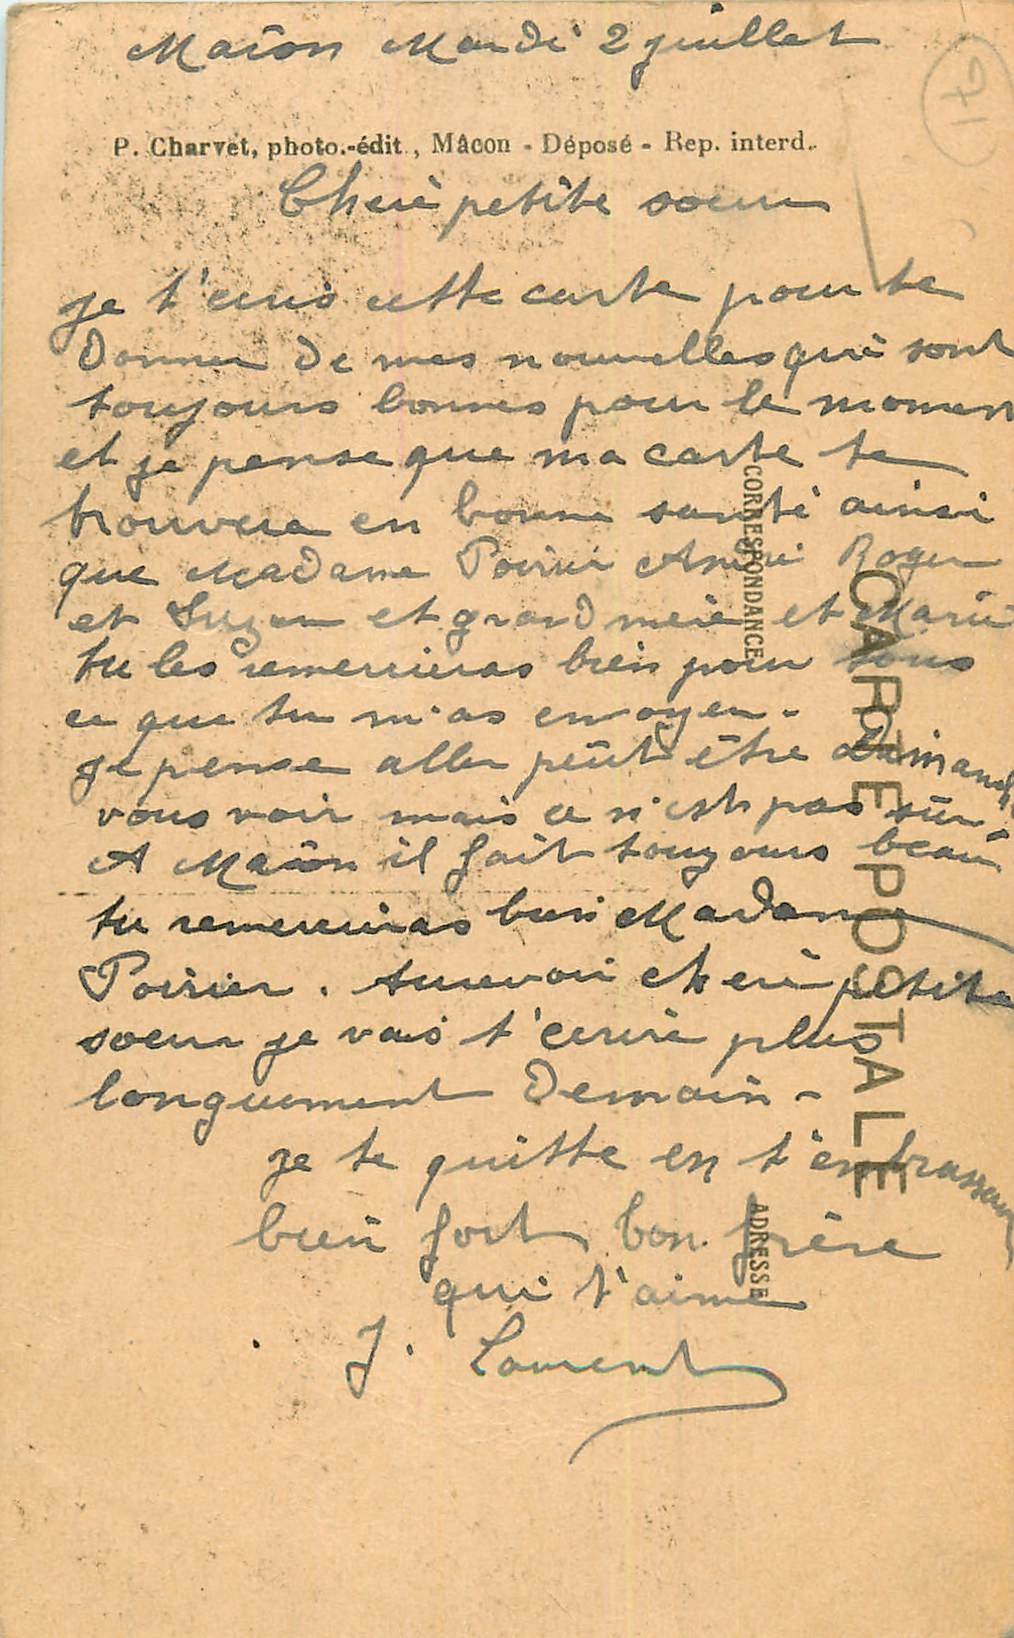 Macon Mardi 2 juillet
P. Charvet, photo.-édit., Mâcon - Déposé - Rep. interd.
Cherè petite soeur
je t'ecris cette carte pour te
donner de mes nouvelles qui sont
toujours bonnes pour le moment
et je pense que ma carte te
trouvera en bonne santé ainsi
que Madame Poirier André Roger
et Suzan et grand mère et Marie
tu les remercieras bien pour tous
ce que tu m'as envoyer.
je pense aller peut être Dimanche
vous voir mais ce n'est pas sûr.
A Macon il fait toujours beau
tu remercieras bien Madame
Poirier. Aurevoir cherè petite
soeur je vais t'ecrire plus
longuement Demain -
je te quitte en t'embrassant
bien fort bon frère
qui t'aime
J. Laurent
CARTE POSTALE
CORRESPONDANCE
ADRESSE